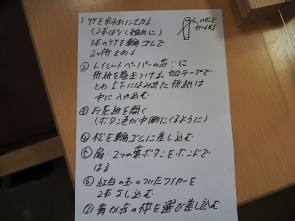 ① 竹を斜めに切る
(2本は少し短めに)
3本の竹を輪ゴムで
2ヶ所とめる
② トイレットペーパーの芯に
折紙を巻きつける。セロテープで
とめ、上下にはみ出た折紙は
中に入れ込む
③ 折紙を開く
(ボタン速が中側にくるように)
④ 松を輪ゴムに差し込む
⑤ 扇・2つの葉ボタンをボンドで
はる
⑥ 紅白の玉のついたワイヤーを
2本さし込む
⑦ 青か赤の枠を選び差し込む